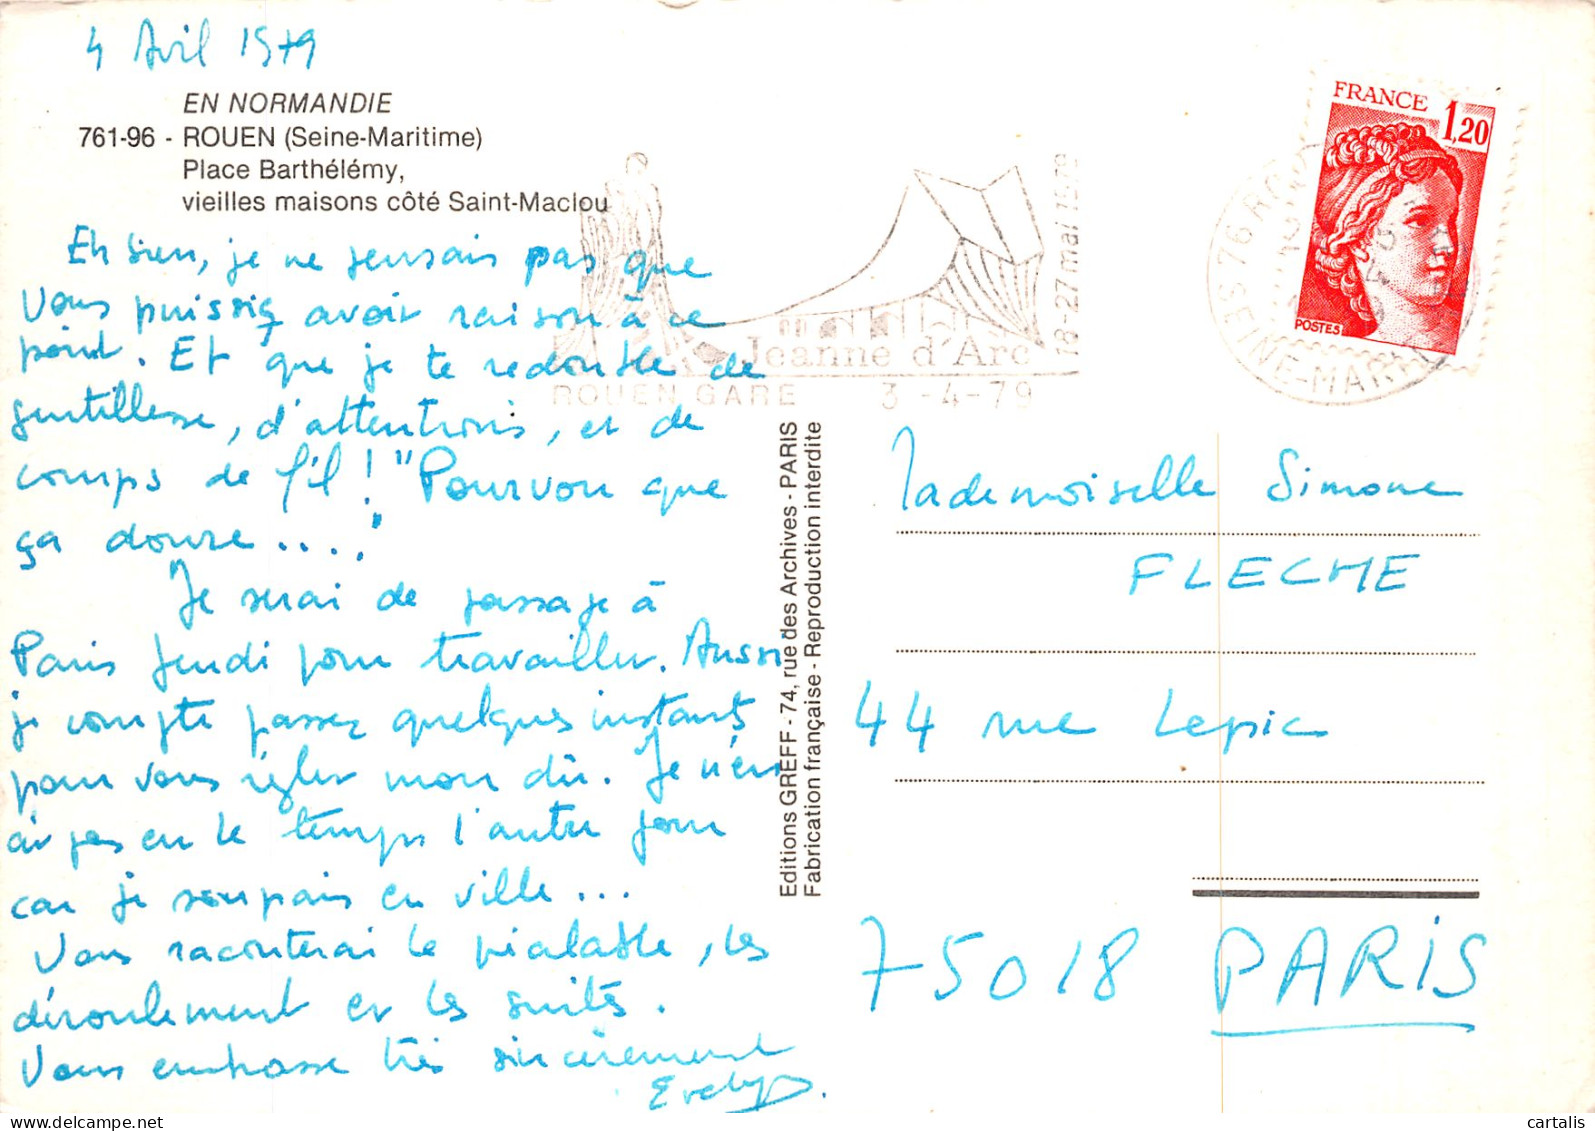 4 Avril 1979
EN NORMANDIE
761-96 - ROUEN (Seine-Maritime)
Place Barthélémy,
vieilles maisons côté Saint-Maclou
Eh bien, je ne pensais pas que
vous puissiez avoir raison à ce
point. Et que je te redouble de
gentillesse, d'attentions, et de
coups de fil ! "Pourvou que
ça doure ...."
Je serai de passage à
Paris Jeudi pour travailler. Aussi
je compte passer quelques instants
pour vous régler mon dû. Je n'en
ai pas eu le temps l'autre jour
car je soupais en ville...
Vous raconterai le préalable, les
déroulement et les suites.
Vous embrasse très sincèrement
Evelyne
FRANCE 1,20
POSTES
76 ROUEN
SEINE-MARITIME
Jeanne d'Arc
18-27 mai 1979
ROUEN GARE 3-4-79
Editions GREFF - 74, rue des Archives - PARIS
Fabrication française - Reproduction interdite
Mademoiselle Simone
FLECHE
44 rue Lepic
75018 PARIS
cartalis
delcampe.net